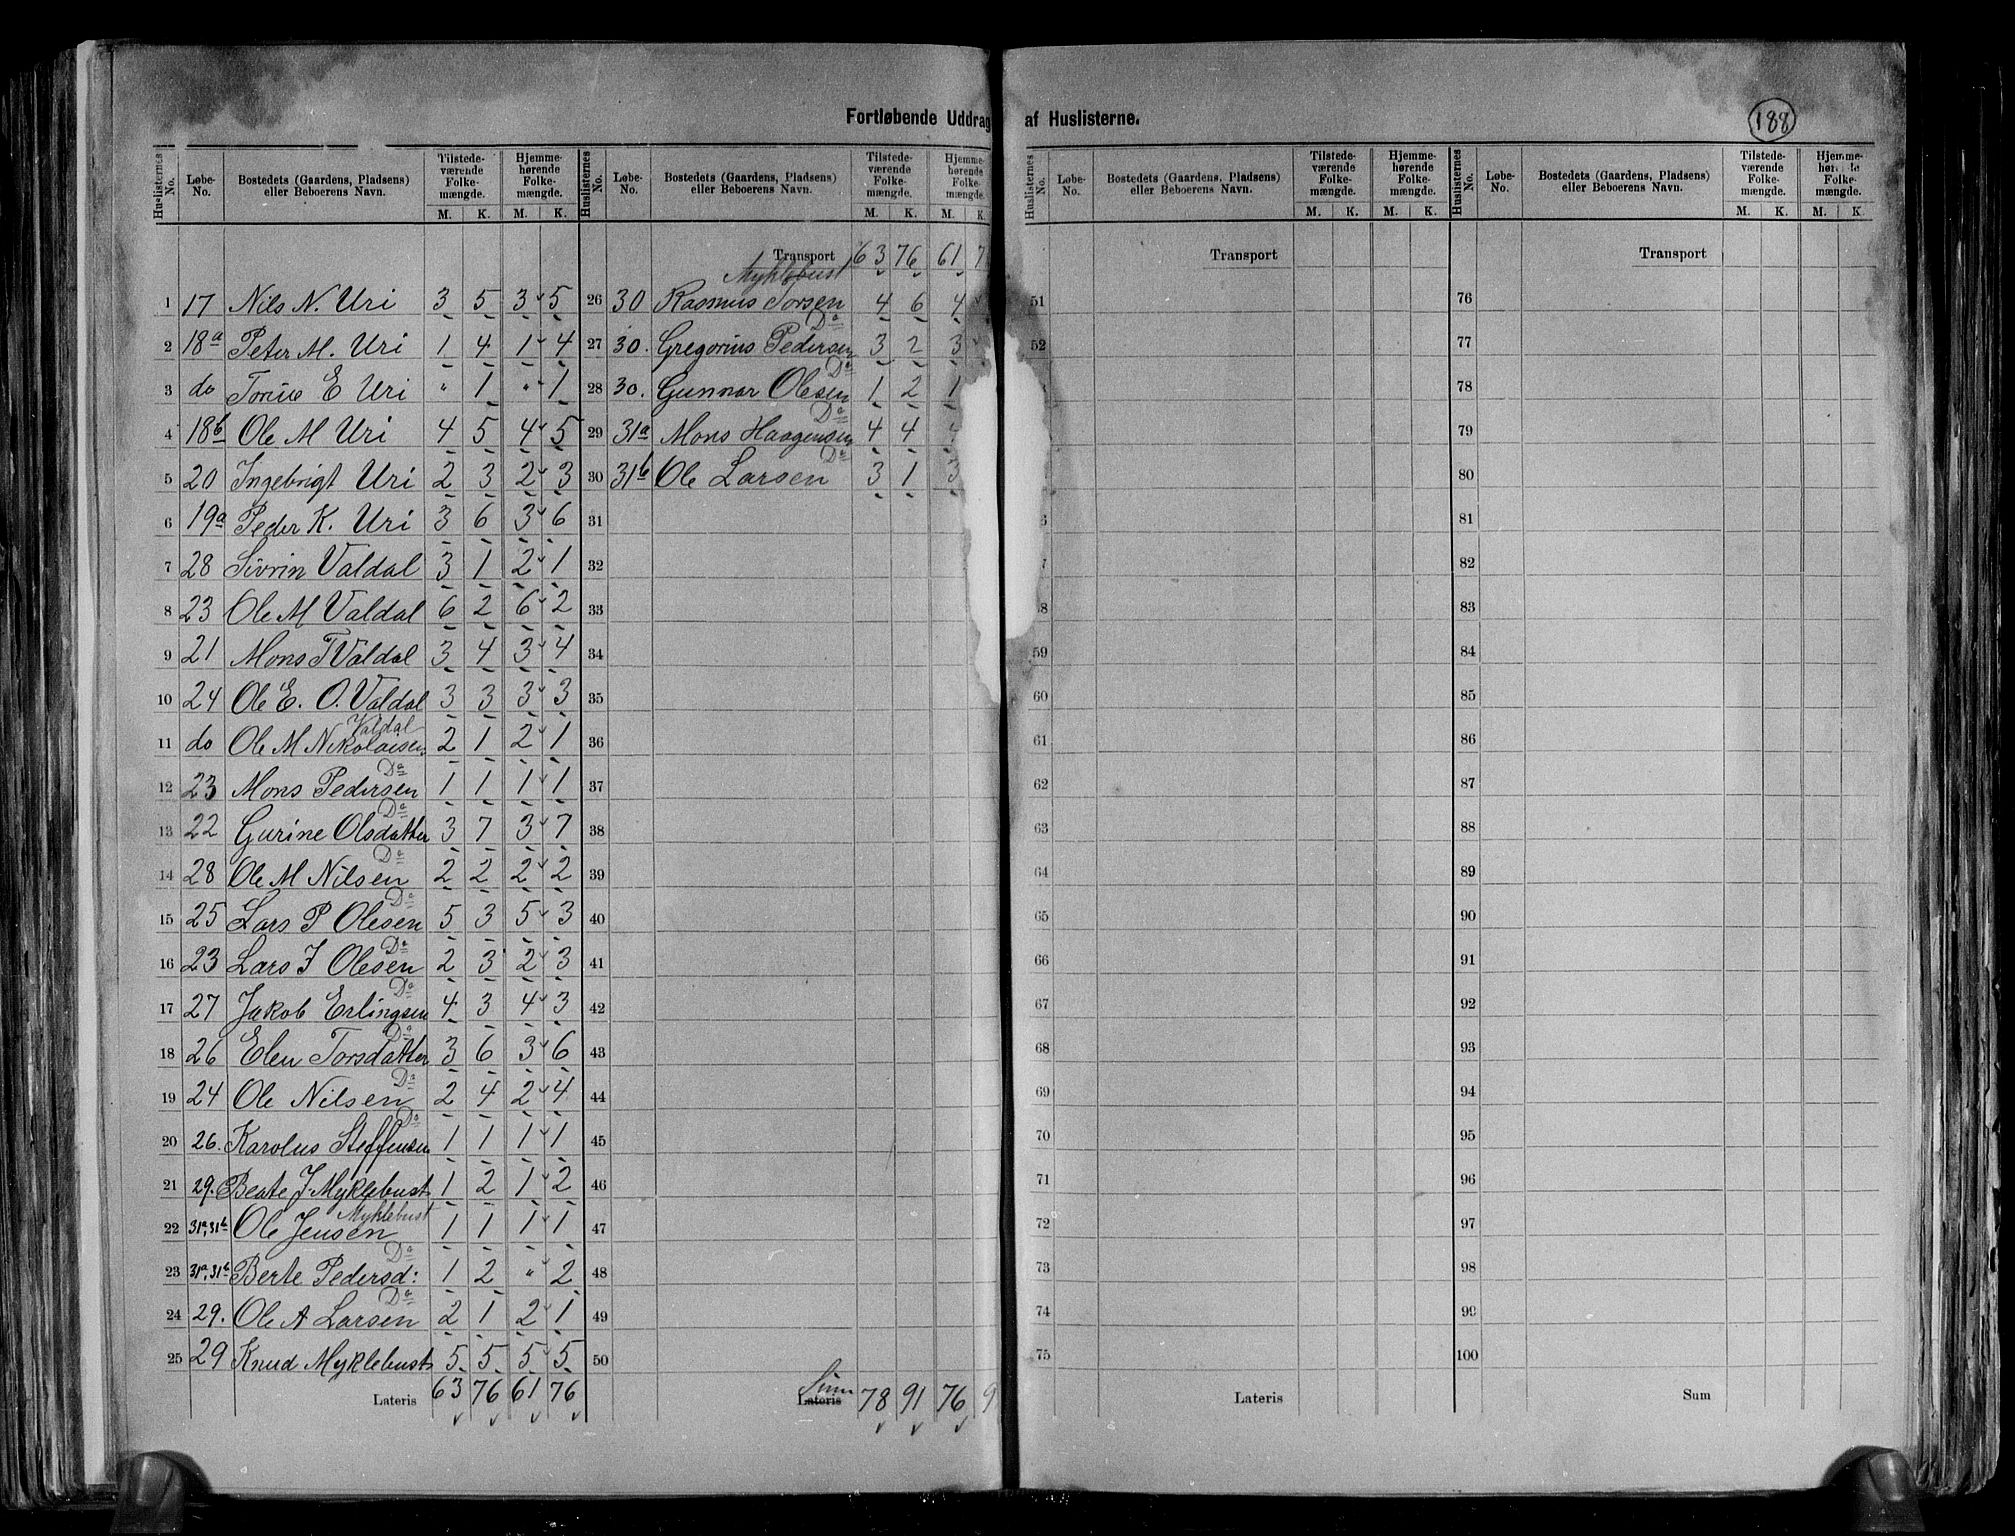 Fortløbende Uddrag af Huslisterne.
188
Huslisternes No. Løbe-No. Bostedets (Gaarden, Pladsens) eller Beboerens Navn. Tilstede-værende Folke-mængde. M. K. Hjemme-hørende Folke-mængde. M. K.
1 17 Nils N. Uri 3 5 3 5
2 18a Peter M. Uri 1 4 1 4
3 do E Uri " 1 " 1
4 18b Ole M Uri 4 5 4 5
5 20 Ingebrigt Uri 2 3 2 3
6 19a Peder K. Uri 3 6 3 6
7 28 Sivrin Valdal 3 1 2 1
8 23 Ole M Valdal 6 2 6 2
9 21 Mons T Valdal 3 4 3 4
10 24 Ole E. O. Valdal 3 3 3 3
Valdal
11 do Ole M Nikolaisen 2 1 2 1
Do
12 23 Mons Pedersen 1 1 1 1
Do
13 22 Gurine Olsdatter 3 7 3 7
Do
14 28 Ole M Nilsen 2 2 2 2
Do
15 25 Lars P Olesen 5 3 5 3
Do
16 23 Lars J Olesen 2 3 2 3
Do
17 27 Jakob Erlingsen 4 3 4 3
Do
18 26 Elen Torsdatter 3 6 3 6
Do
19 24 Ole Nilsen 2 4 2 4
Do
20 26. Karolus Steffensen 1 1 1 1
21 29. Beate J. Myklebust 1 2 1 2
Myklebust
22 31a, 31b Ole Jensen 1 1 1 1
Do
23 31a, 31b Berte Pedersd: 1 2 " 2
Do
24 29. Ole A Larsen 2 1 2 1
25 29 Knud Myklebust 5 5 5 5
Lateris 63 76 61 76
Huslisternes No. Løbe-No. Bostedets (Gaardens, Pladsens) eller Beboerens Navn. Tilstede-værende Folke-mængde. M. K. Hjemme-hørende Folke-mængde. M. K.
Transport 63 76 61 7
Myklebust
26 30 Rasmus Torsen 4 6 4
Do
27 30. Gregorius Pedersen 3 2 3
Do
28 30. Gunnar Olesen 1 2 1
Do
29 31a Mons Haagensen 4 4
Do
30 31b Ole Larsen 3 1 3
31
32
33
34
35
36
37
38
39
40
41
42
43
44
45
46
47
48
49
50
Sum
Lateris 78 91 76 9
Huslisternes No. Løbe-No. Bostedets (Gaardens, Pladsens) eller Beboerens Navn. Tilstede-værende Folke-mængde. M. K. Hjemme-hørende Folke-mængde. M. K.
Transport
51
52
59
60
61
62
63
64
65
66
67
68
69
70
71
72
73
74
75
Lateris
Huslisternes No. Løbe-No. Bostedets (Gaardens, Pladsens) eller Beboerens Navn. Tilstede-værende Folke-mængde. M. K. Hjemme-hørende Folke-mængde. M. K
Transport
76
77
78
79
80
81
82
83
84
85
86
87
88
89
90
91
92
93
94
95
96
97
98
99
100
Sum